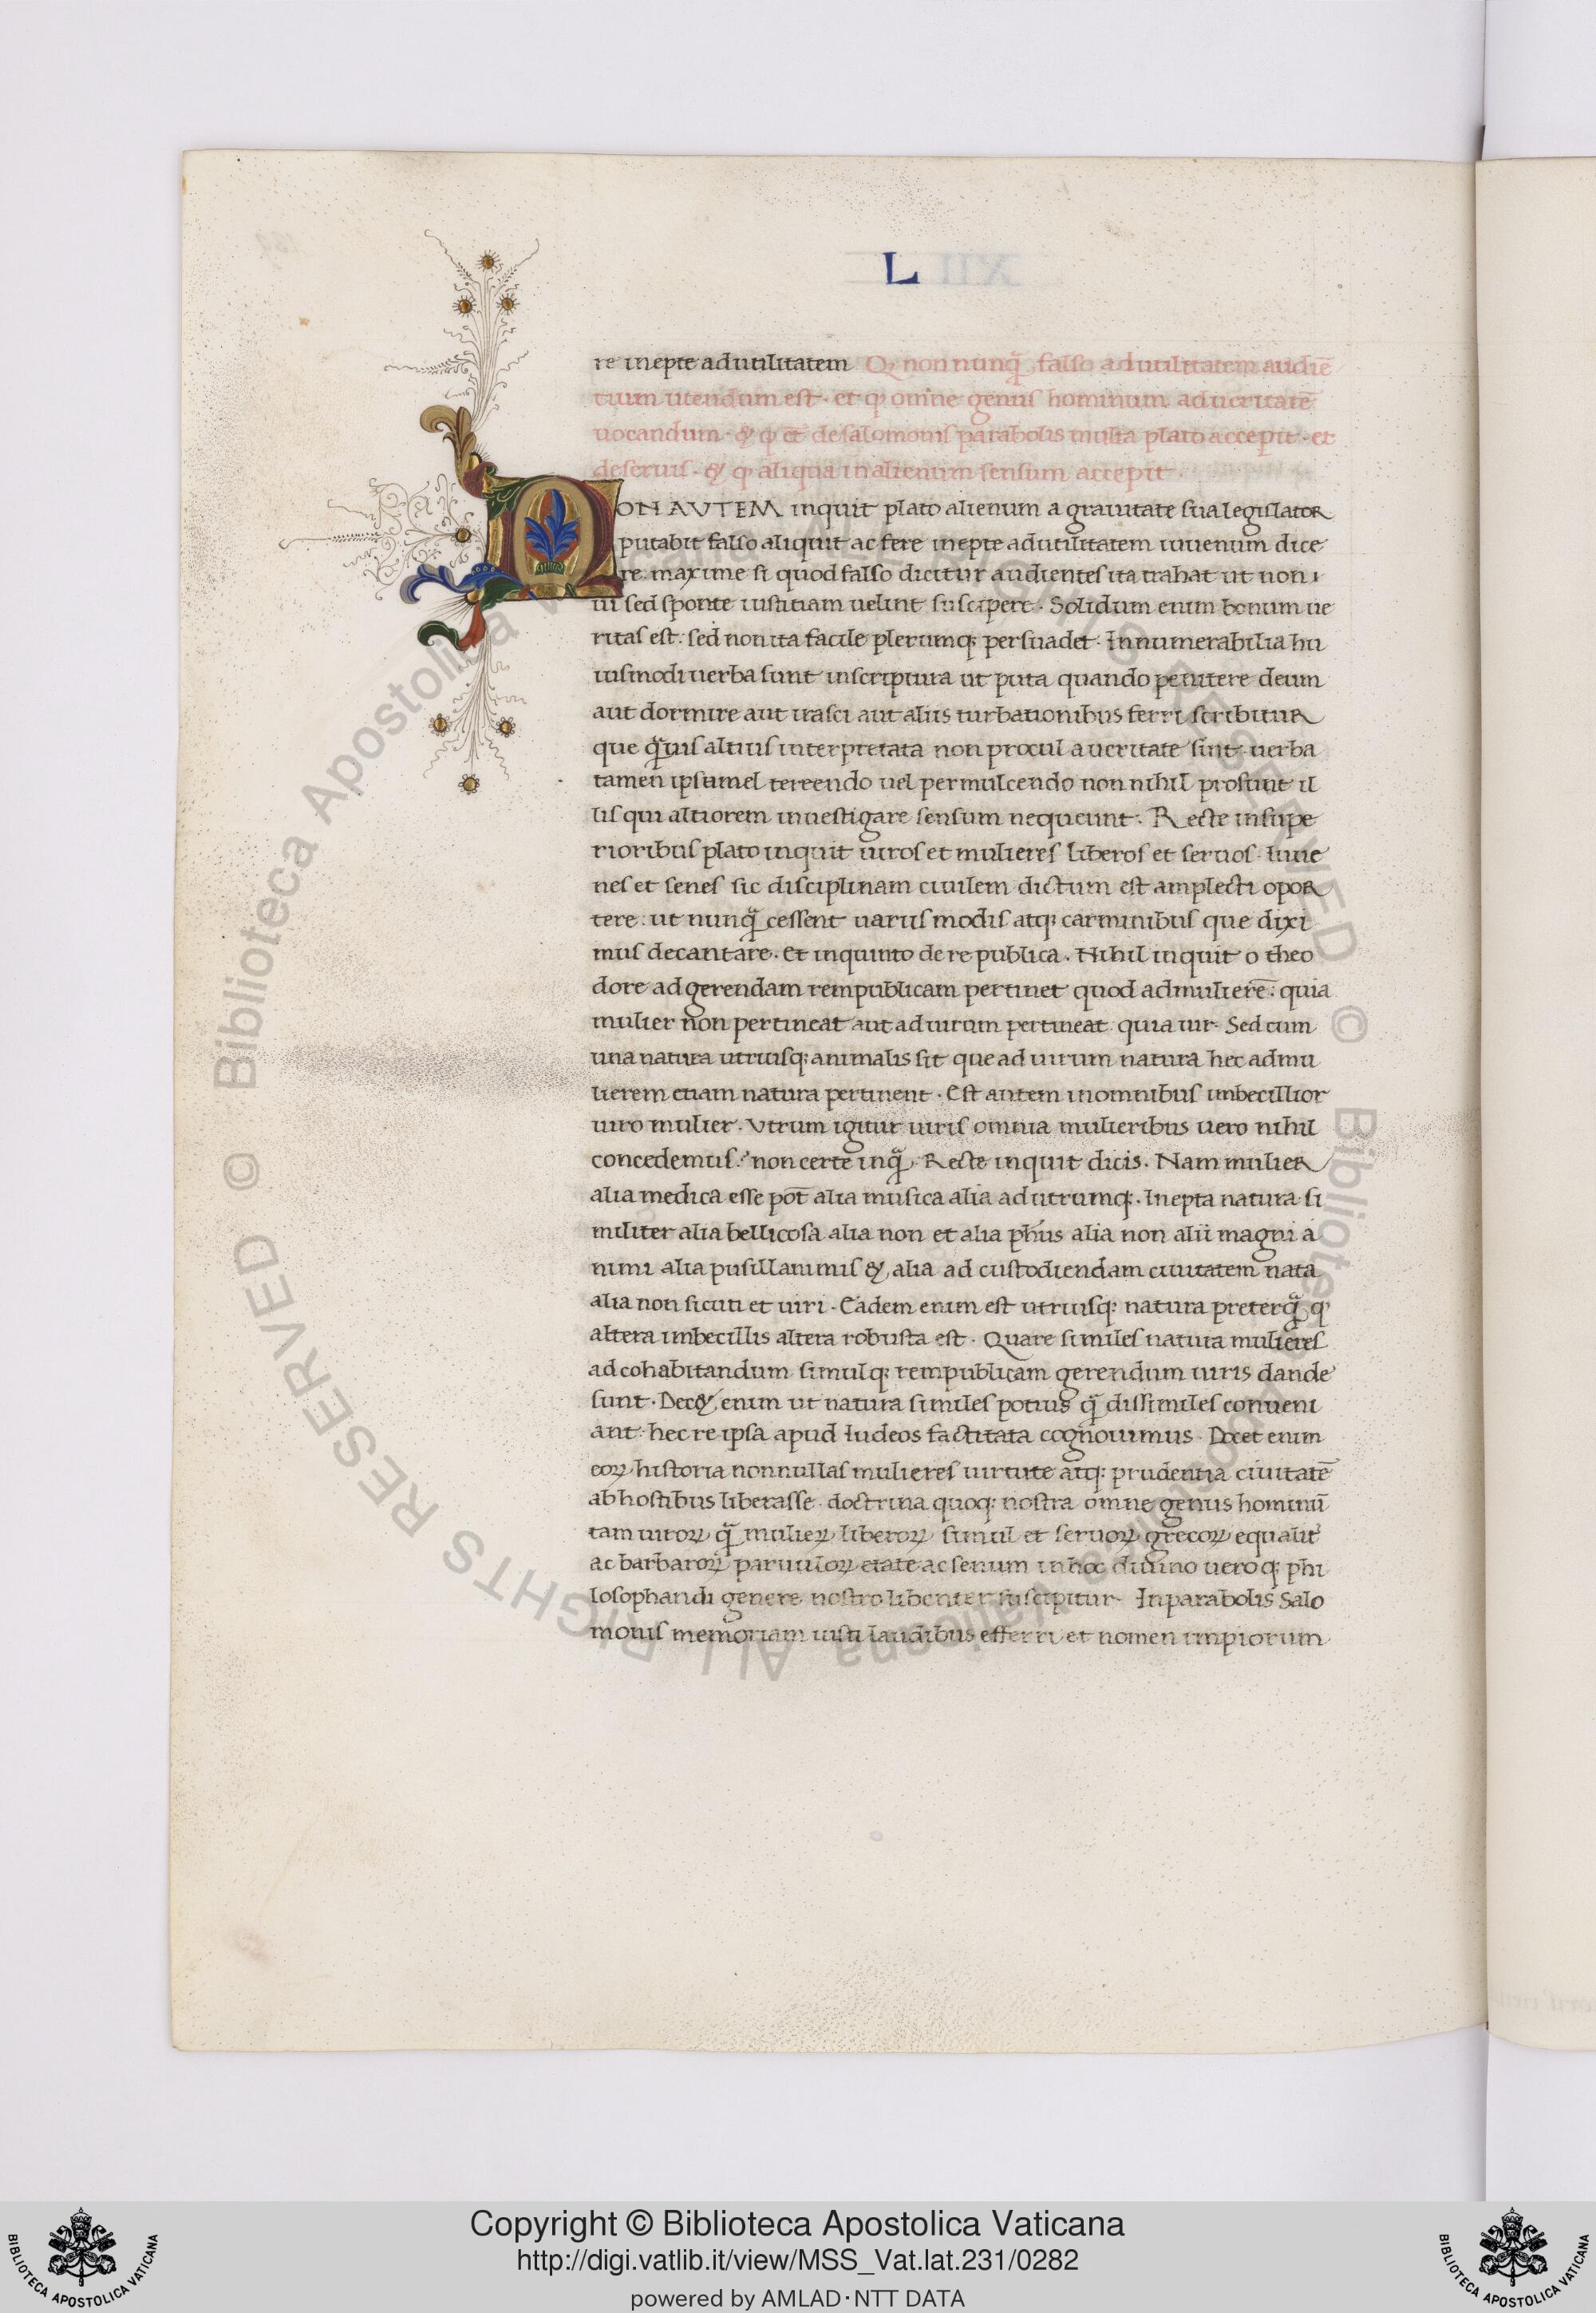 L
re inepte ad utilitatem Q non nunq̃ falso ad utilitatem audiẽ
tium utendum est · et ꝙ omne genus hominum ad ueritatẽ
uocandum · & ꝙ ẽ de salomonis parabolis multa plato accepit · et
de seruis · & ꝙ aliqua in alienum sensum accepit ·
NON AVTEM inquit plato alienum a grauitate sua legislator
putabit falso aliquit ac fere inepte ad utilitatem iuuenum dice
re: maxime si quod falso dicitur audientes ita trahat ut non i
ui sed sponte iustitiam uelint suscipere · Solidum enim bonum ue
ritas est: sed non ita facile plerumq; persuadet · Innumerabilia hu
iusmodi uerba sunt in scriptura ut puta quando penitere deum
aut dormire aut irasci aut aliis turbationibus ferri scribitur
que q̃uis altius interpretata non procul a ueritate sint · uerba
tamen ipsumel terrendo uel permulcendo non nihil prosunt il
lis qui altiorem inuestigare sensum nequeunt · Recte in supe
rioribus plato inquit uiros et mulieres liberos et seruos · Iuue
nes et senes sic disciplinam ciuilem dictum est amplecti opor
tere: ut nunq̃ cessent uariis modis atq; carminibus que dixi
mus decantare · Et in quinto de re publica · Nihil inquit o theo
dore ad gerendam rempublicam pertinet quod ad mulierẽ: quia
mulier non pertineat aut ad uirum pertineat quia uir · Sed cum
una natura utriusq; animalis sit que ad uirum natura hec ad mu
lierem etiam natura pertinent · Est autem in omnibus imbecillior
uiro mulier · Vtrum igitur uiris omnia mulieribus uero nihil
concedemus? non certe inq̃ · Recte inquit dicis · Nam mulier
alia medica esse põt alia musica alia ad utrumq; · Inepta natura si
militer alia bellicosa alia non et alia phũs alia non alii magni a
nimi alia pusillanimis & alia ad custodiendam ciuitatem nata
alia non sicuti et uiri · Eadem enim est utriusq; natura preterq̃ ꝙ
altera imbecillis altera robusta est · Quare similes natura mulieres
ad cohabitandum simulq; rempublicam gerendum uiris dande
sunt · Dec& enim ut natura similes potius q̃ dissimiles conueni
ant: hec re ipsa apud Iudeos factitata cognouimus · Docet enim
eoꝝ historia nonnullas mulieres uirtute atq; prudentia ciuitatẽ
ab hostibus liberasse · doctrina quoq; nostra omne genus hominũ
tam uiroꝝ q̃ mulieꝝ liberoꝝ simul et seruoꝝ grecoꝝ equalit̃
ac barbaroꝝ paruuloꝝ etate ac senum in hoc diuino ueroq; phi
losophandi genere nostro libenter suscipitur · In parabolis Salo
monis memoriam iusti laudibus efferri et nomen impiorum
© Biblioteca Apostolica Vaticana ALL RIGHTS RESERVED
Copyright © Biblioteca Apostolica Vaticana
http://digi.vatlib.it/view/MSS_Vat.lat.231/0282
powered by AMLAD·NTT DATA
BIBLIOTECA APOSTOLICA VATICANA
BIBLIOTECA APOSTOLICA VATICANA